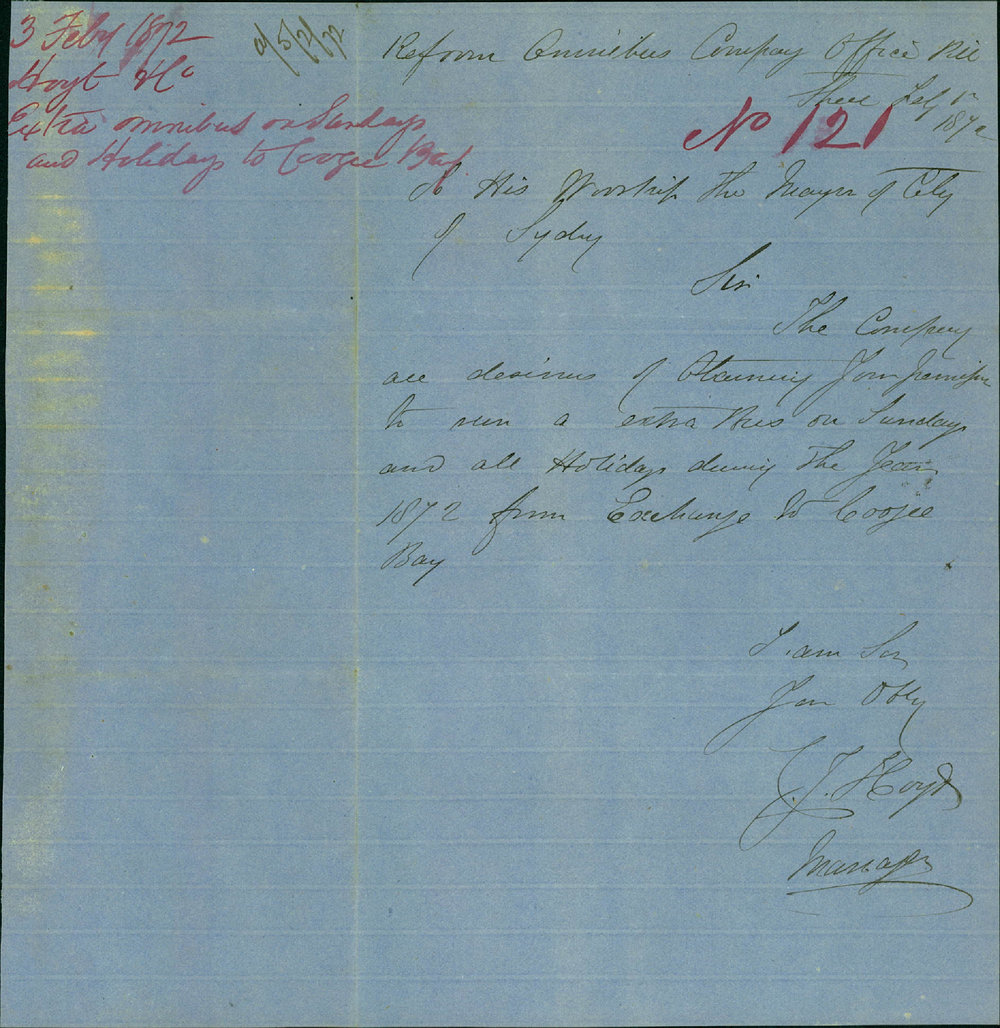 3 Feby 1872
Hoyt & Co
Extra omnibus on Sundays
and Holidays to Coogee Bay
5/2/72
Reform Omnibus Company Office Pitt
Street Feby 1st
1872
No 121
To His Worship the Mayor of City
of Sydny
Sir
The Company
are desirous of Obtaining Your permission
to run a extra Bus on Sundays
and all Holidays during the Year
1872 from Exchange to Coogee
Bay
I am Sir
Your Obly
J. Hoyt
Manager